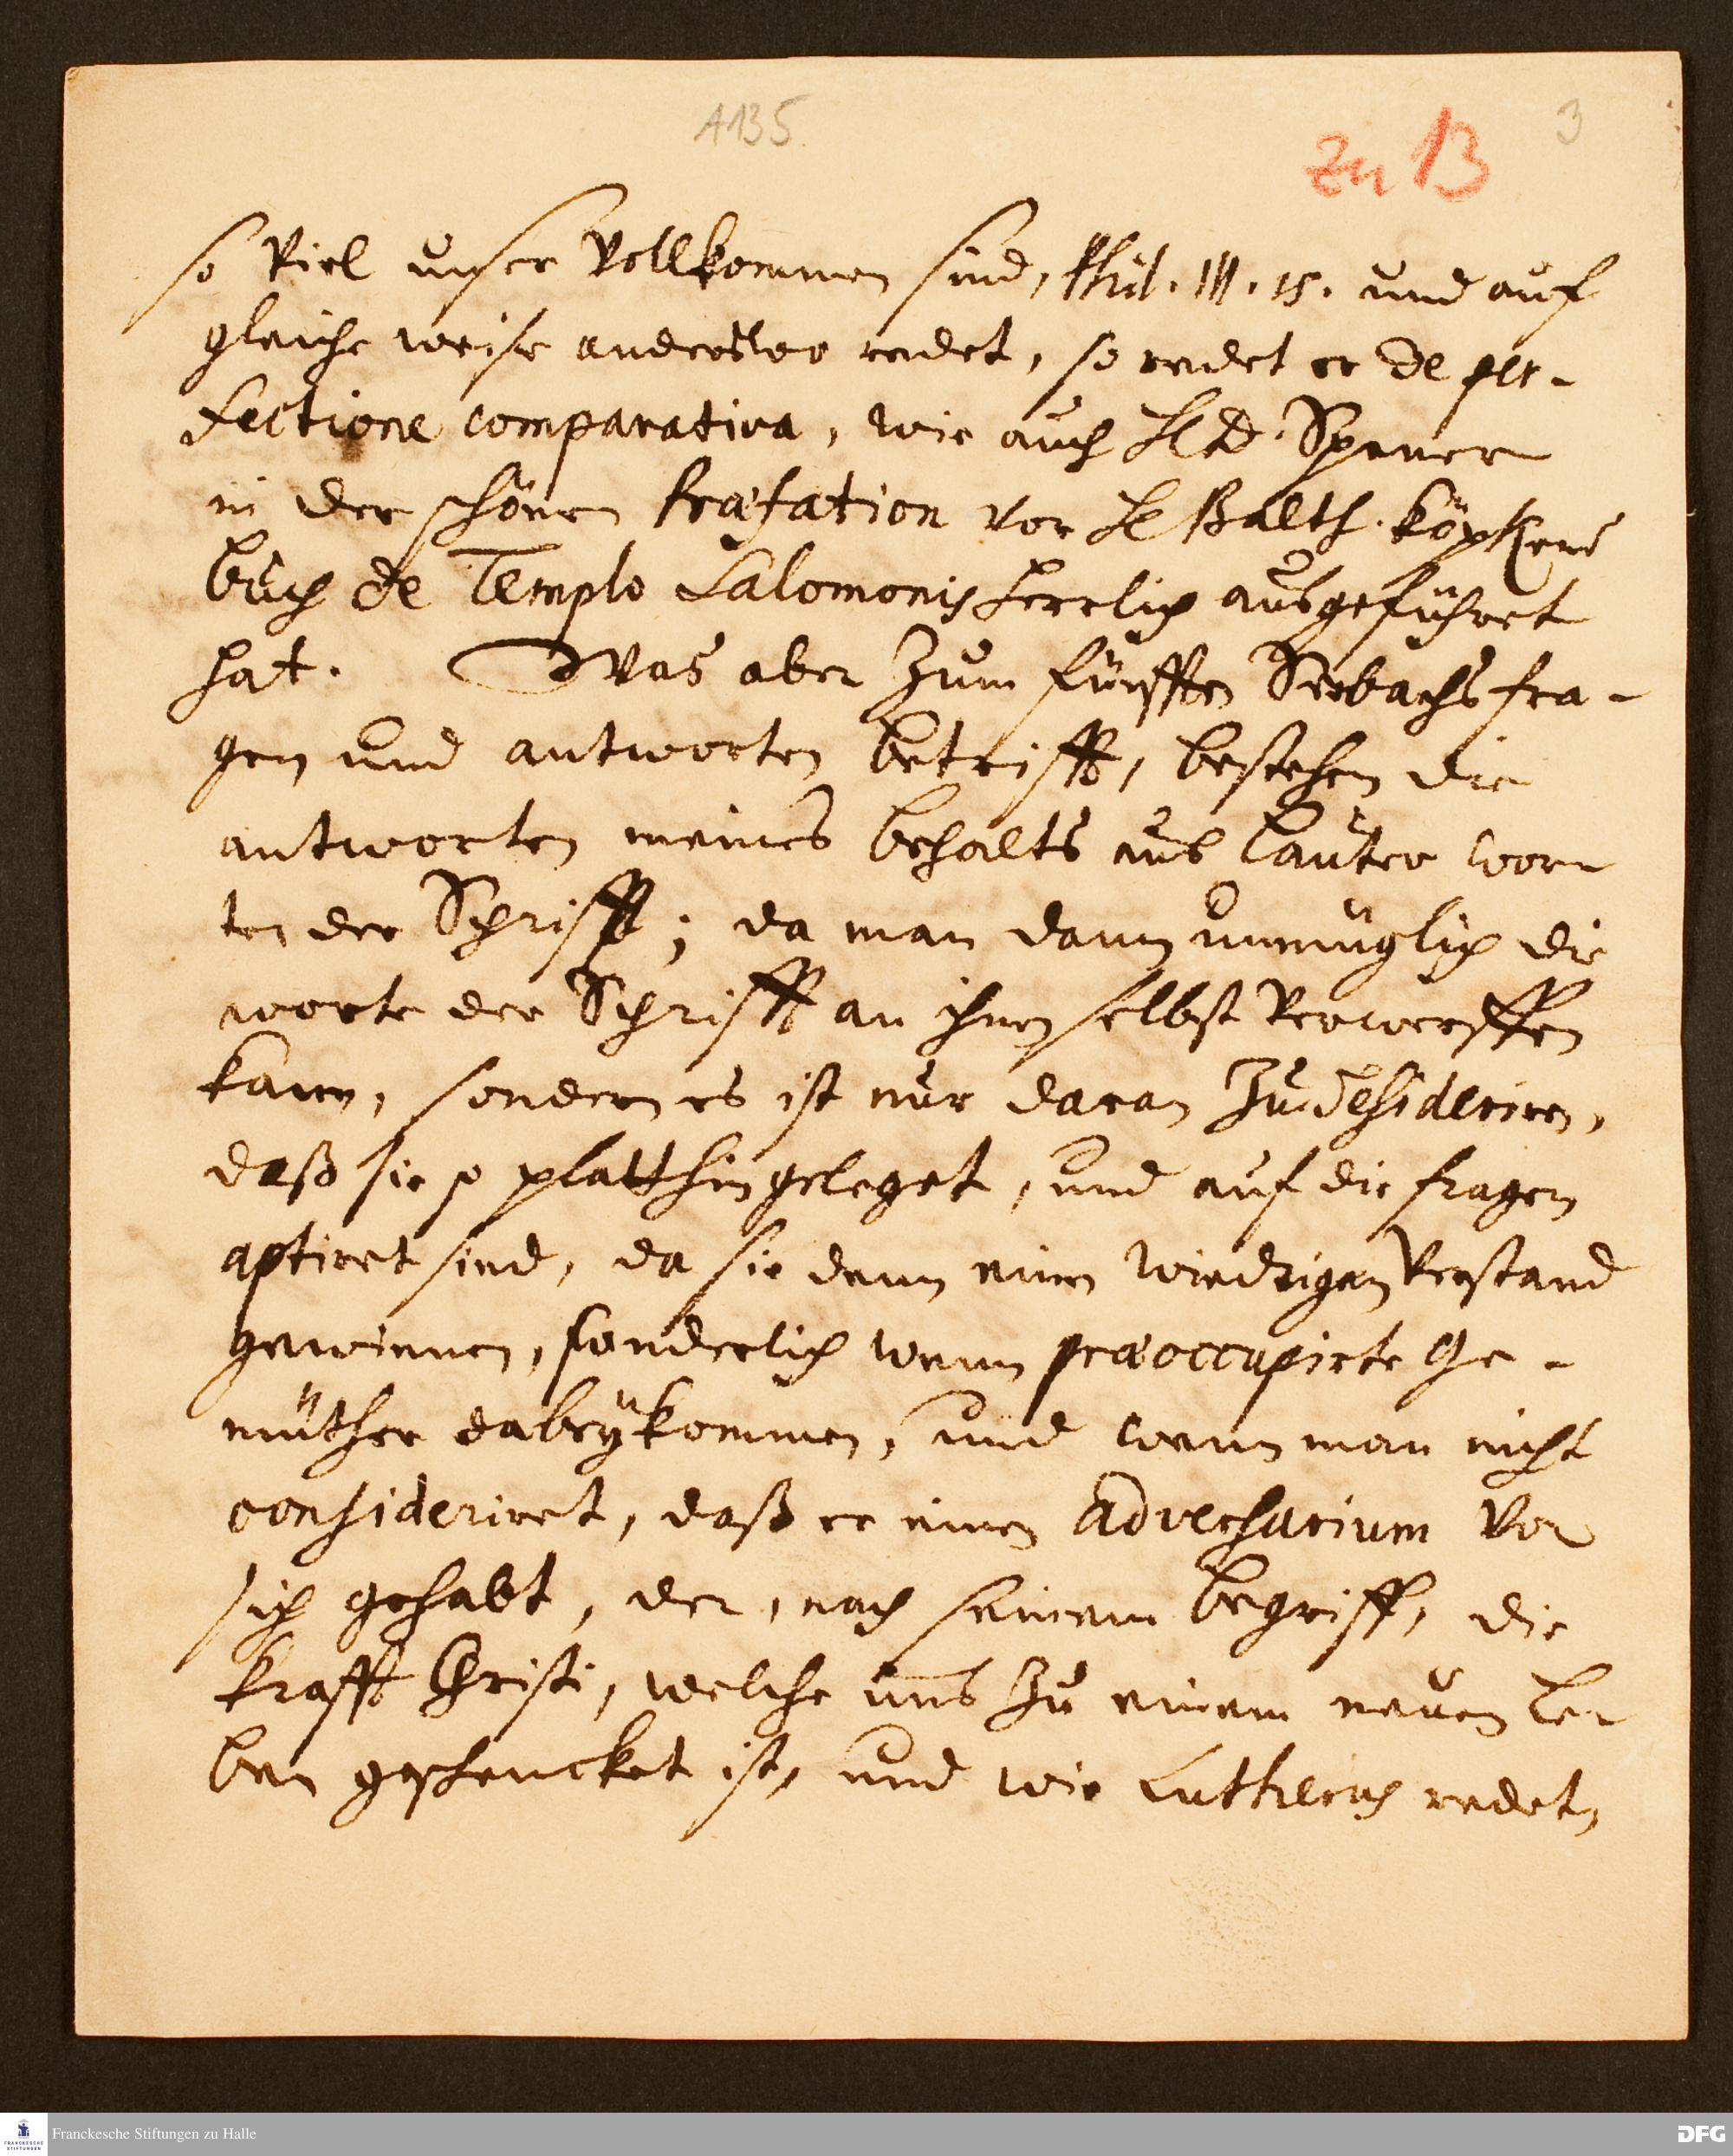 A135
zu 13
3
so viel unser vollkommen sind, Phil. III. 15. und auf
gleiche weise anderswo redet, so redet er de per-
fectione comparativa, wie auch H. D. Spener
in der schönen Præfation vor H. Balth. Köpkens
buch de Templo Salomonis herrlich ausgeführet
hat. Was aber zum fünfften Seebachs fra-
gen und antworten betrifft, bestehen die
antworten meines behalts aus lauter wor-
ten der Schrifft; da man dann unmüglich die
worte der Schrifft an ihnen selbst verwerffen
kann, sondern es ist nur daran zu desideriren,
daß sie so platthin geleget, und auf die fragen
aptiret sind, da sie denn einen wiedrigen verstand
gewinnen, sonderlich wenn præoccupirte Ge-
müther dabeÿ kommen, und wenn man nicht
consideriret, daß er einen Adversarium vor
sich gehabt, der, nach seinem begriff, die
krafft Christi, welche uns zu einem neuen Le-
ben geschencket ist, und wie Lutherus redet,
Franckesche Stiftungen zu Halle
FRANCKESCHE
STIFTUNGEN
DFG